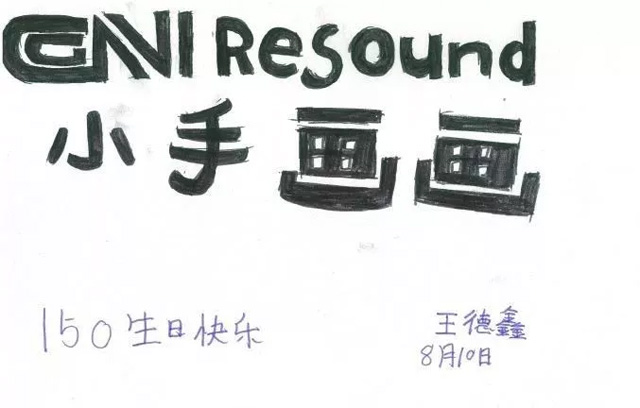 GN ReSound
小手画画
150生日快乐
王德鑫
8月10日